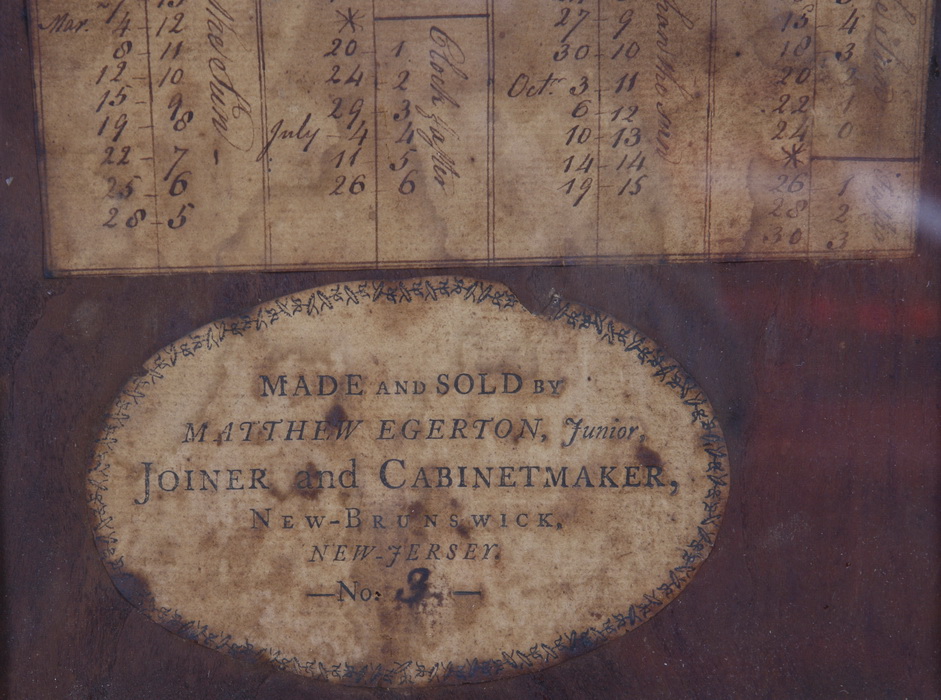 Mar. 4 12
8 11
12 10
15 9
19 8
22 7
25 6
28 5
Sun
*
20 1
24 2
29 3
July 4 4
11 5
26 6
Clock faster
27 9
30 10
Octr. 3 11
6 12
10 13
14 14
19 15
than the sun
15 4
18 3
20 2
22 1
24 0
*
26 1
28 2
30 3
MADE AND SOLD BY
MATTHEW EGERTON, Junior,
JOINER and CABINETMAKER,
NEW-BRUNSWICK,
NEW-JERSEY.
—No: 3 —